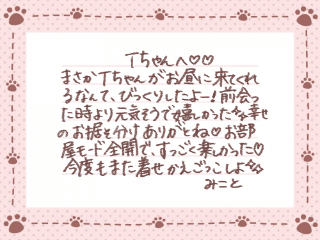 Tちゃんへ♡♡
まさかTちゃんがお昼に来てくれ
るなんて、びっくりしたよー!前会っ
た時より元気そうで嬉しかった✨幸せ
のお裾分けありがとね♡お部
屋モード全開で、すっごく楽しかった♡
今度もまた着せかえごっこしよ✨
みこと